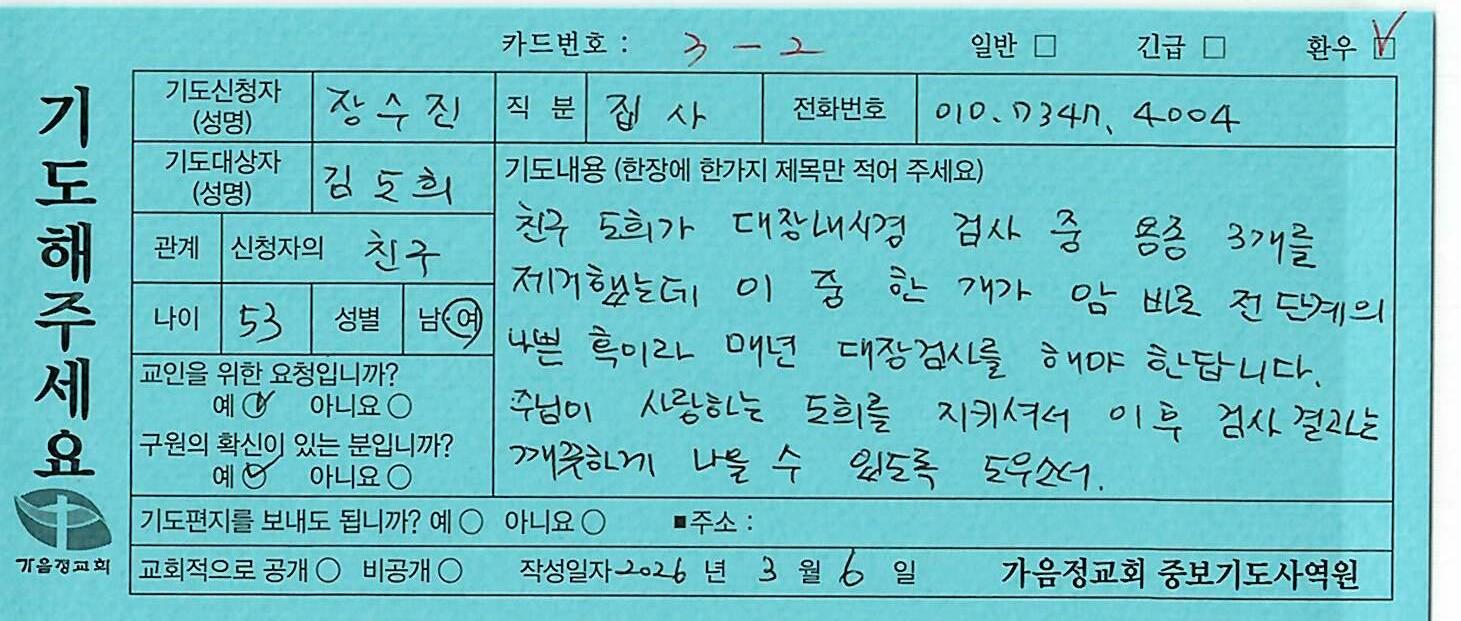 카드번호 : 3 - 2 일반 □ 긴급 □ 환우 ☑
기도해주세요
기도신청자 (성명) 장수진 직 분 집사 전화번호 010. 7347. 4004
기도대상자 (성명) 김도희
기도내용 (한장에 한가지 제목만 적어 주세요)
친구 도희가 대장내시경 검사 중 용종 3개를
제거했는데 이 중 한 개가 암 바로 전 단계의
나쁜 혹이라 매년 대장검사를 해야 한답니다.
주님이 사랑하는 도희를 지키셔서 이후 검사 결과는
깨끗하게 나올 수 있도록 도우소서.
관계 신청자의 친구
나이 53 성별 남·여
교인을 위한 요청입니까?
예 아니요 ○
구원의 확신이 있는 분입니까?
예 아니요 ○
기도편지를 보내도 됩니까? 예 ○ 아니요 ○ ■주소 :
교회적으로 공개 ○ 비공개 ○ 작성일자 2026 년 3 월 6 일 가음정교회 중보기도사역원
가음정교회